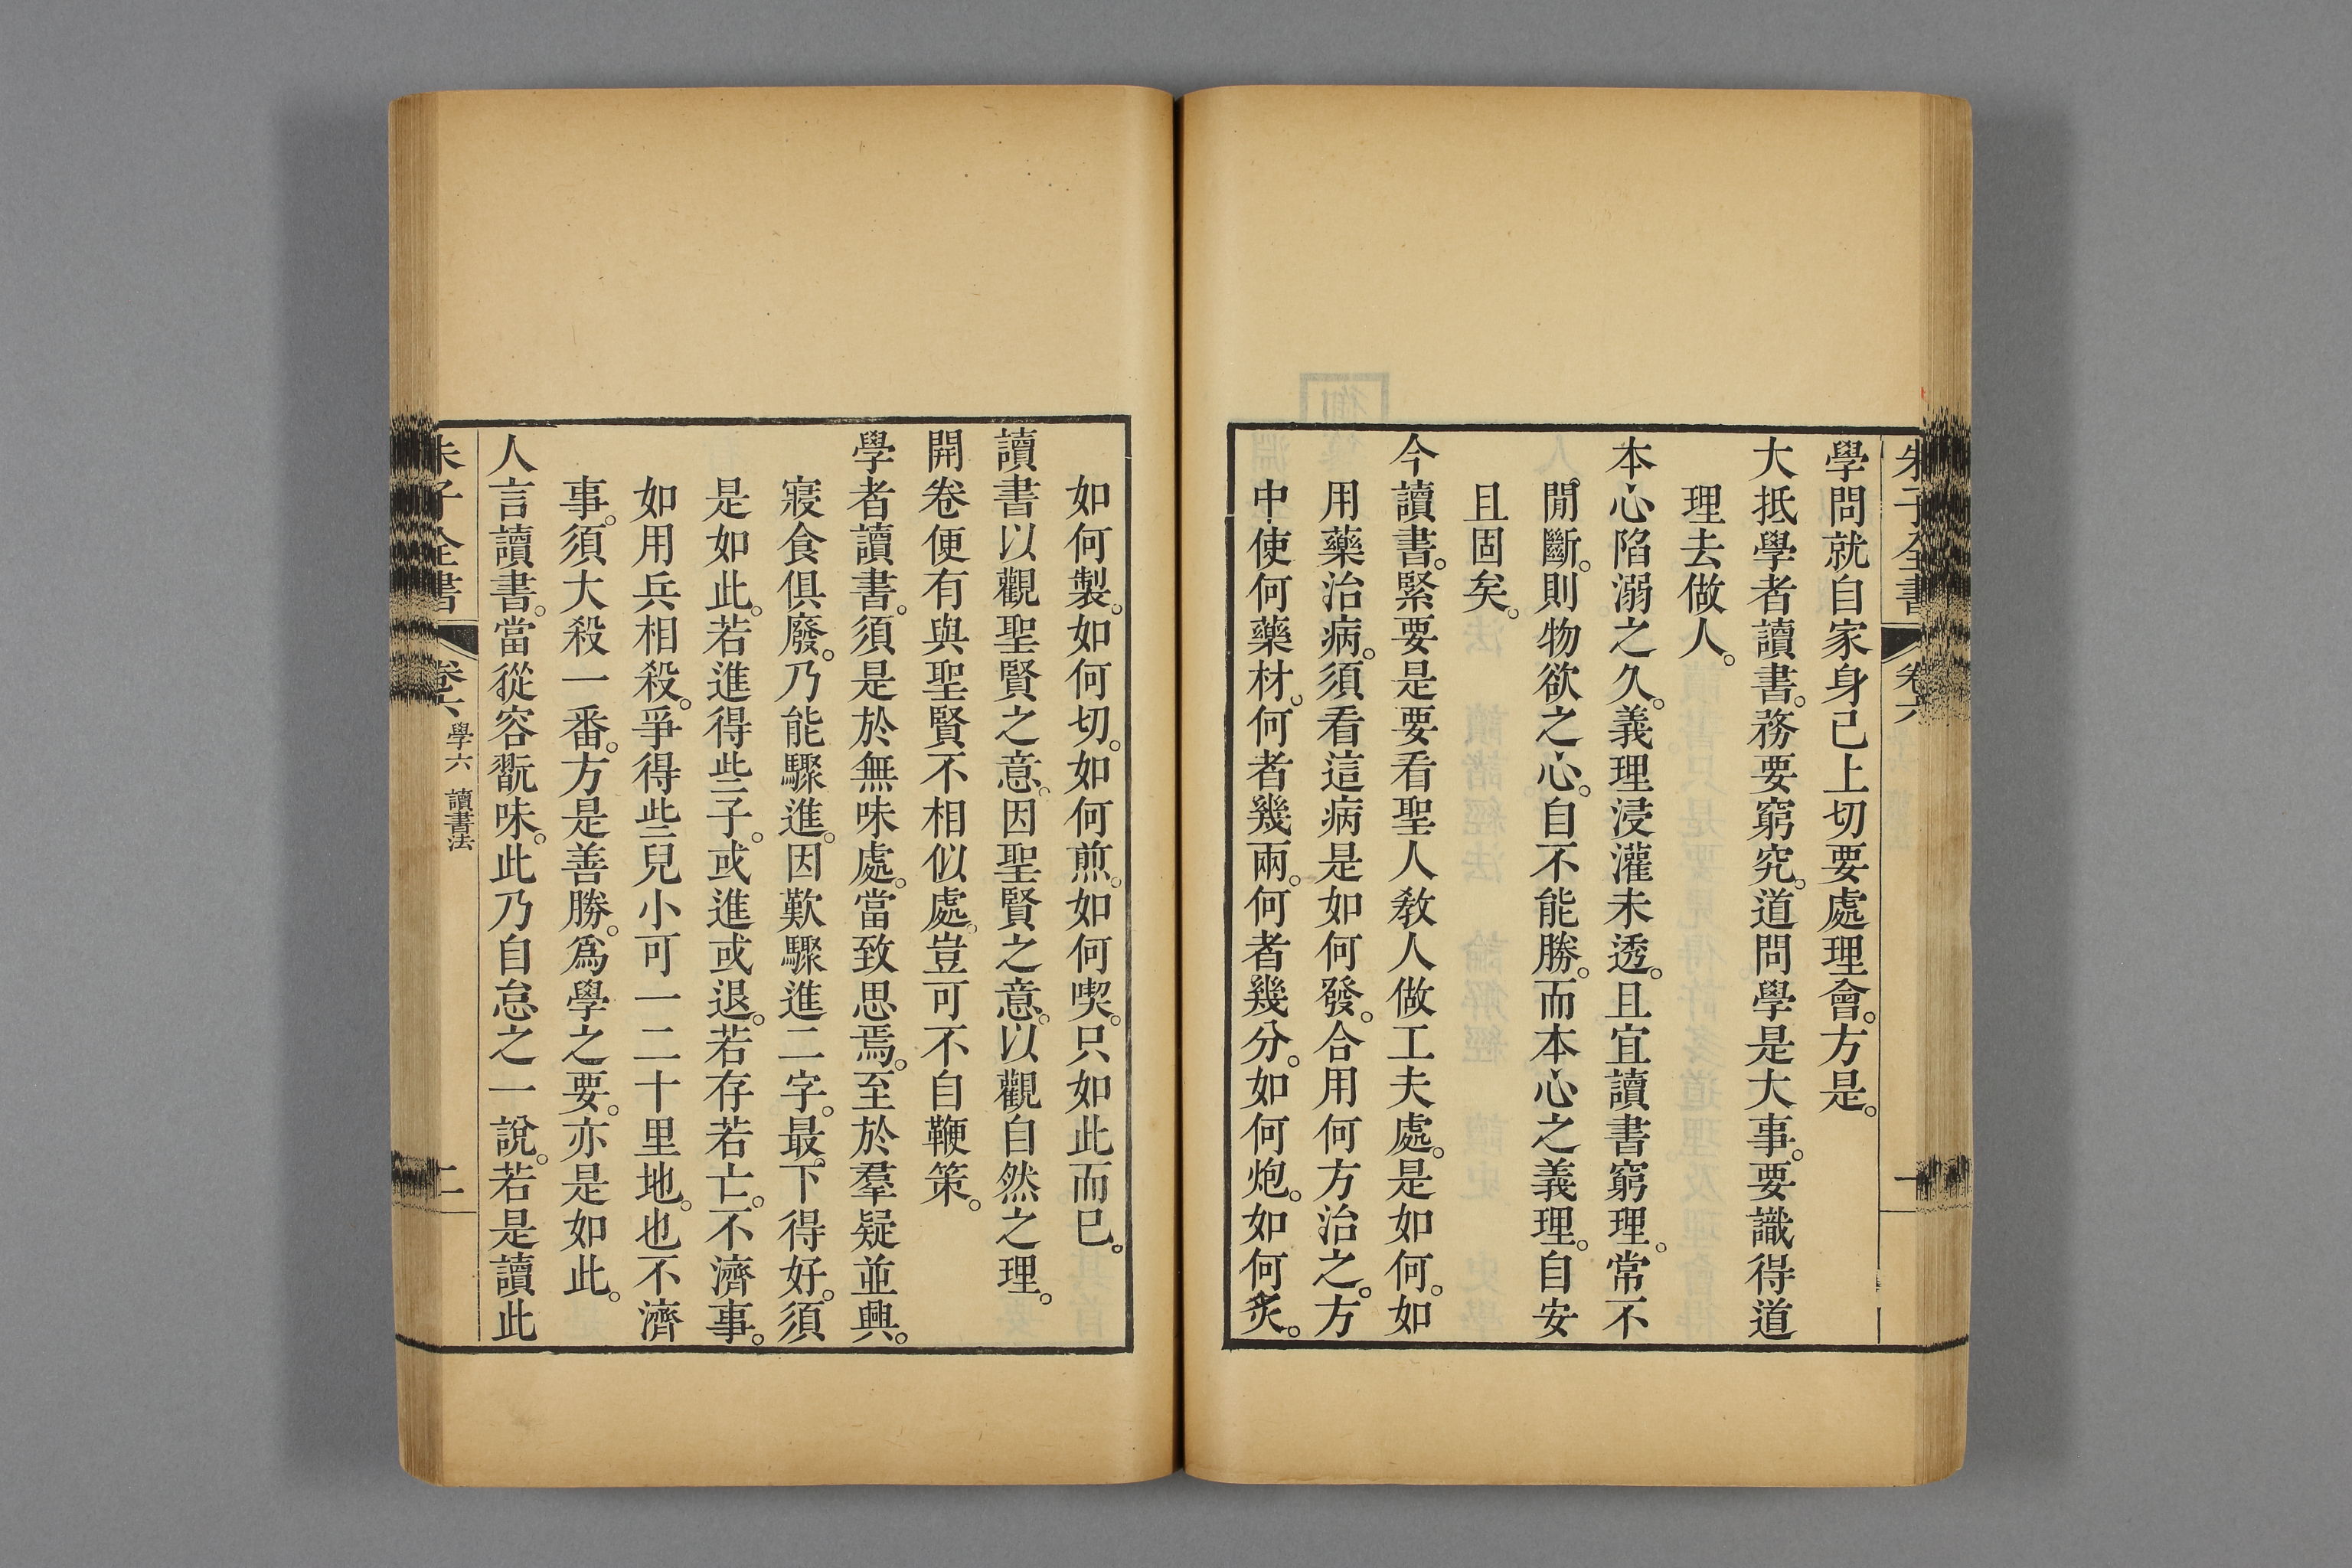 朱子全書 卷六 一
學問就自家身己上切要處理會。方是。
大抵學者讀書。務要窮究。道問學是大事。要識得道
理去做人。
本心陷溺之久。義理浸灌未透。且宜讀書窮理。常不
閒斷。則物欲之心。自不能勝。而本心之義理。自安
且固矣。
今讀書。緊要是要看聖人敎人做工夫處。是如何。如
用藥治病。須看這病是如何發。合用何方治之。方
中使何藥材。何者幾兩。何者幾分。如何炮。如何炙。
如何製。如何切。如何煎。如何喫。只如此而已。
讀書以觀聖賢之意。因聖賢之意。以觀自然之理。
開卷便有與聖賢不相似處。豈可不自鞭策。
學者讀書。須是於無味處。當致思焉。至於羣疑並興。
寢食俱廢。乃能驟進。因歎驟進二字。最下得好。須
是如此。若進得些子。或進或退。若存若亡。不濟事。
如用兵相殺。爭得些兒小可一二十里地。也不濟
事。須大殺一番。方是善勝。爲學之要。亦是如此。
人言讀書。當從容翫味。此乃自怠之一說。若是讀此
朱子全書 卷六 學六 讀書法 二